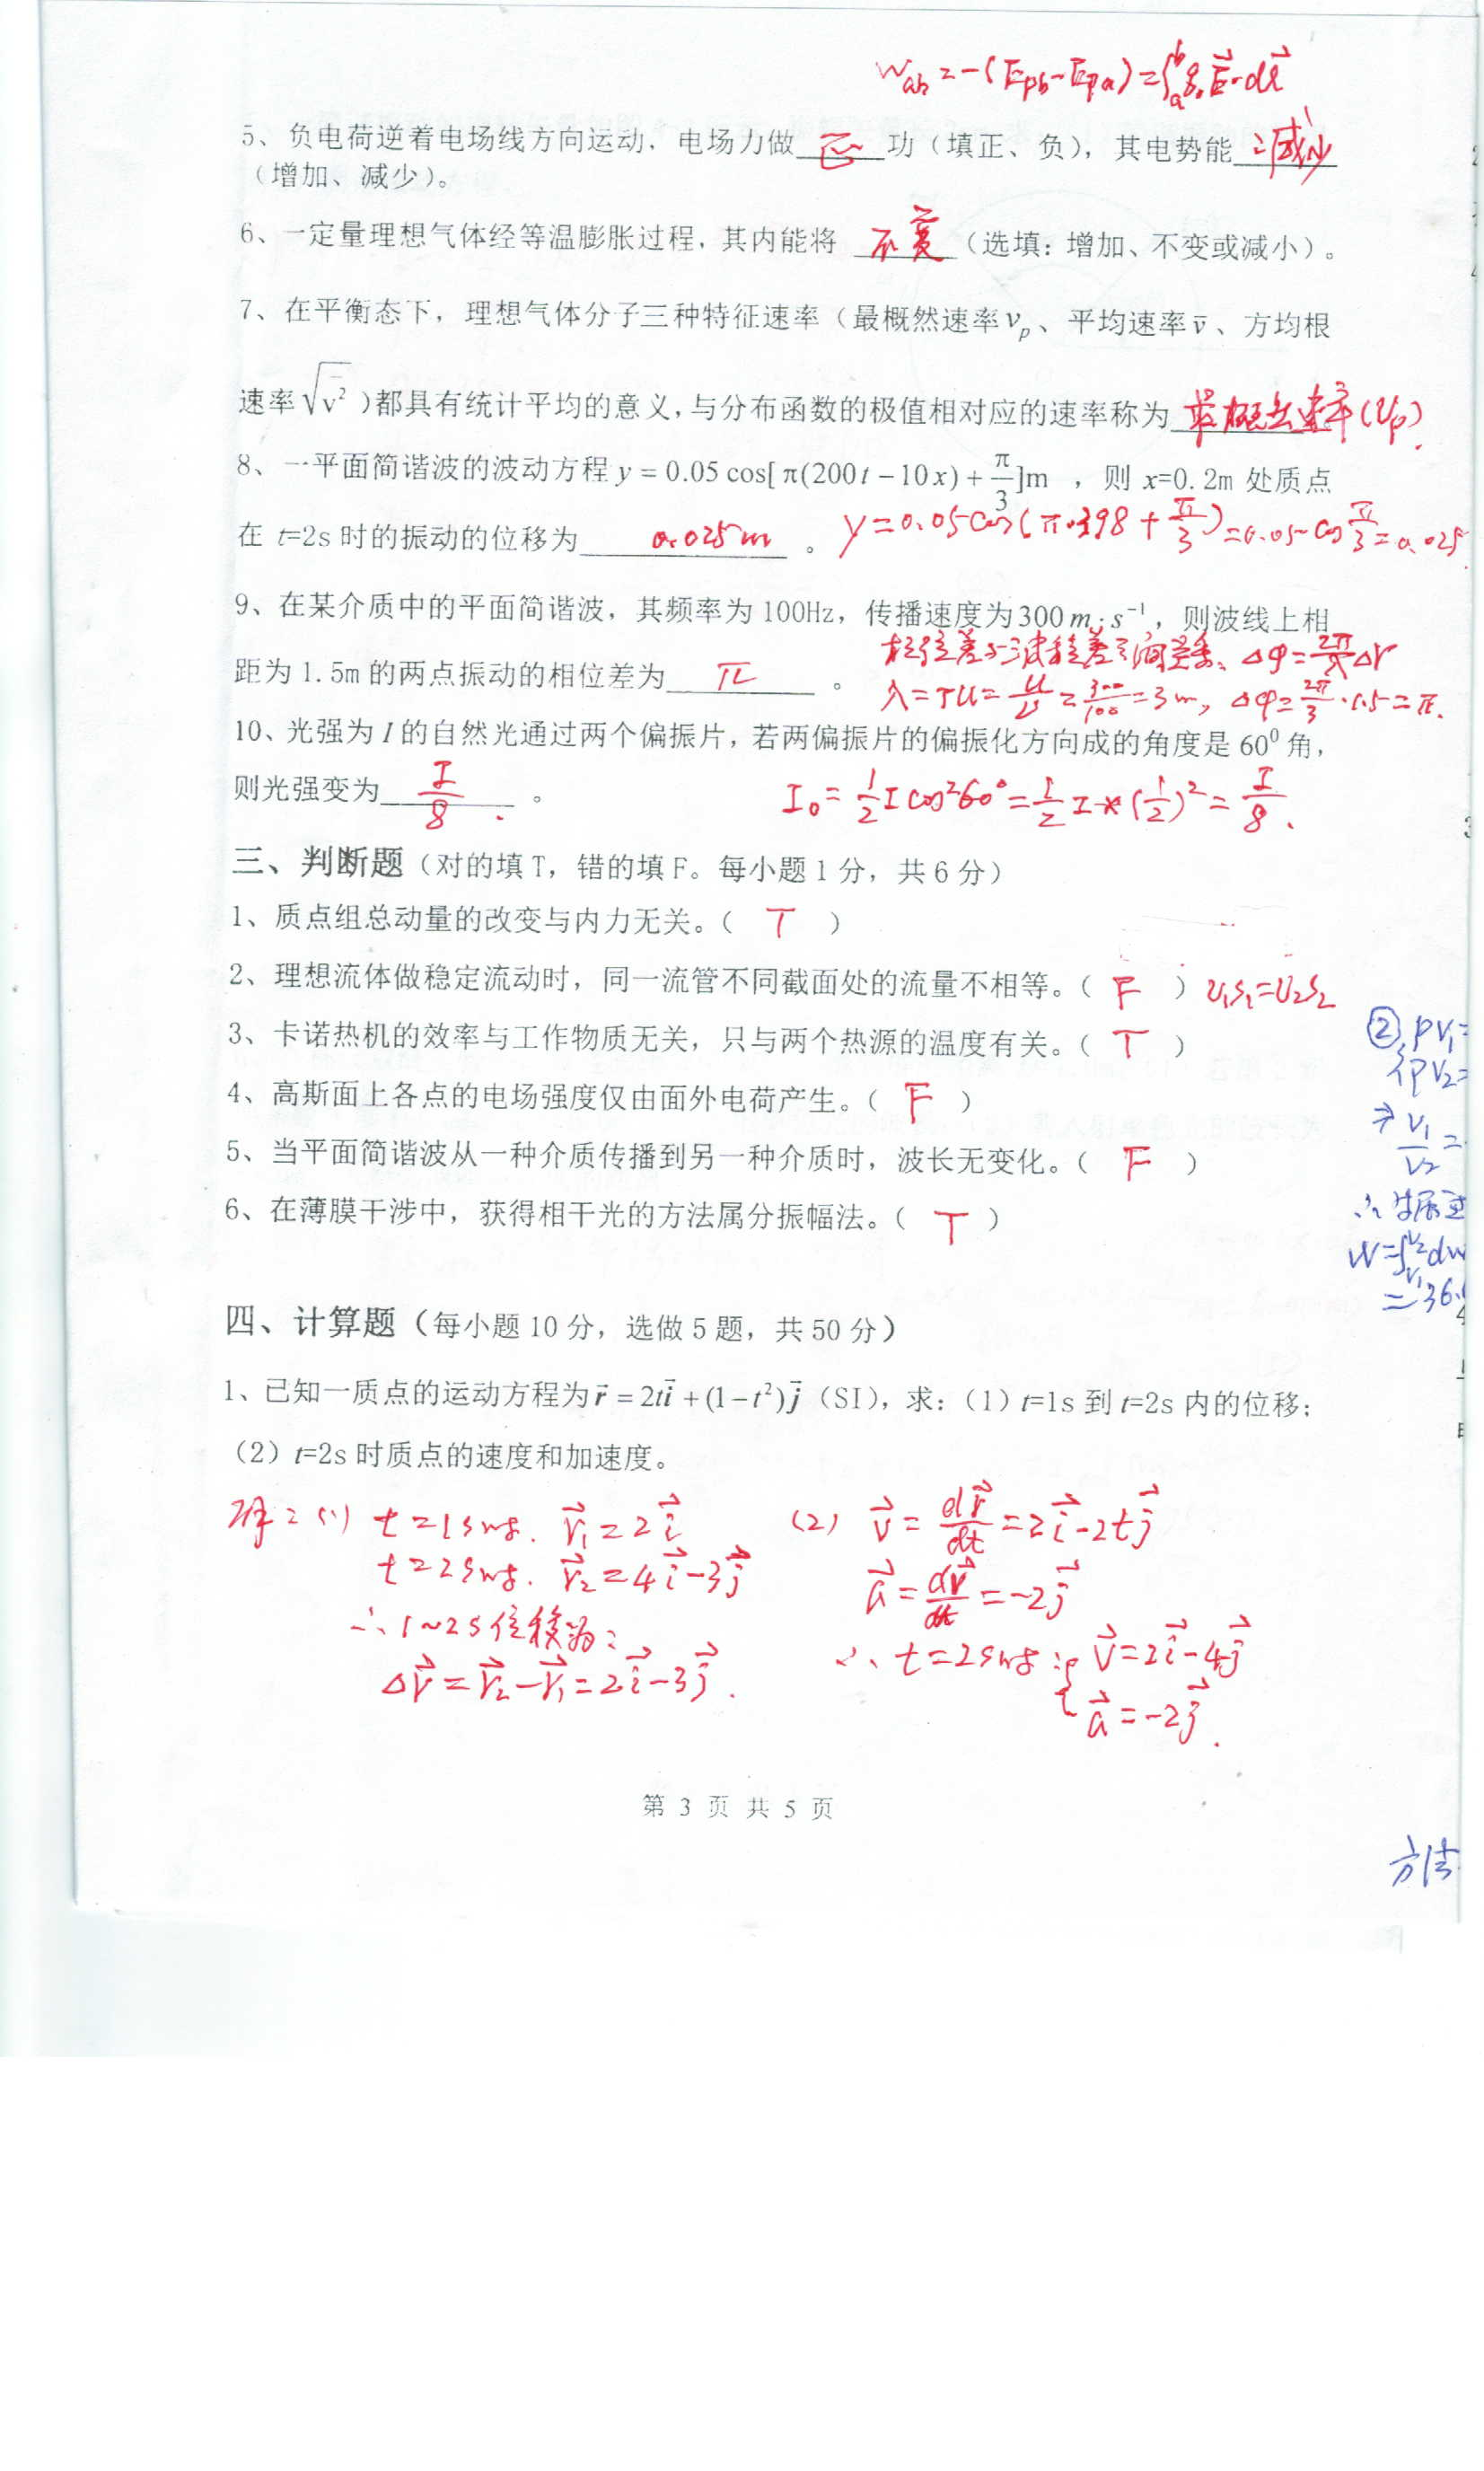 W_ab = -(E_pb - E_pa) = ∫_a^b q₀ E⃗·dl⃗
5、负电荷逆着电场线方向运动，电场力做 正 功（填正、负），其电势能 减少
（增加、减少）。
6、一定量理想气体经等温膨胀过程，其内能将 不变 （选填：增加、不变或减小）。
7、在平衡态下，理想气体分子三种特征速率（最概然速率 v_p、平均速率 v̄、方均根
速率 √(v̄²) )都具有统计平均的意义，与分布函数的极值相对应的速率称为 最概然速率(v_p).
8、一平面简谐波的波动方程 y = 0.05 cos[π(200t − 10x) + π/3]m ，则 x=0.2m 处质点
在 t=2s 时的振动的位移为 0.025m 。 y = 0.05cos(π·398 + π/3) = 0.05cos π/3 = 0.025.
9、在某介质中的平面简谐波，其频率为 100Hz，传播速度为 300 m·s⁻¹，则波线上相
相位差与波程差之间关系、Δφ = 2π/λ Δr
距为 1.5m 的两点振动的相位差为 π 。 λ = Tu = u/ν = 300/100 = 3m, Δφ = 2π/3 · 1.5 = π.
10、光强为 I 的自然光通过两个偏振片，若两偏振片的偏振化方向成的角度是 60⁰ 角，
则光强变为 I/8 . 。 I₀ = 1/2 I cos²60° = 1/2 I × (1/2)² = I/8 .
三、判断题（对的填 T，错的填 F。每小题 1 分，共 6 分）
1、质点组总动量的改变与内力无关。（ T ）
2、理想流体做稳定流动时，同一流管不同截面处的流量不相等。（ F ） v₁s₁=v₂s₂
3、卡诺热机的效率与工作物质无关，只与两个热源的温度有关。（ T ）
4、高斯面上各点的电场强度仅由面外电荷产生。（ F ）
5、当平面简谐波从一种介质传播到另一种介质时，波长无变化。（ F ）
6、在薄膜干涉中，获得相干光的方法属分振幅法。（ T ）
② PV₁=
PV₂=
⇒ V₁/V₂ =
W = ∫_{V₁}^{V₂} dW
= 36.
四、计算题（每小题 10 分，选做 5 题，共 50 分）
1、已知一质点的运动方程为 r⃗ = 2t i⃗ + (1 − t²) j⃗（SI），求：（1）t=1s 到 t=2s 内的位移；
（2）t=2s 时质点的速度和加速度。
解：(1) t=1s时. r⃗₁ = 2i⃗
t=2s时. r⃗₂ = 4i⃗ - 3j⃗
∴ 1~2s位移为：
Δr⃗ = r⃗₂ - r⃗₁ = 2i⃗ - 3j⃗ .
(2) v⃗ = dr⃗/dt = 2i⃗ - 2t j⃗
a⃗ = dv⃗/dt = -2j⃗
∴ t=2s时：{ v⃗ = 2i⃗ - 4j⃗
a⃗ = -2j⃗ .
第 3 页 共 5 页
方法